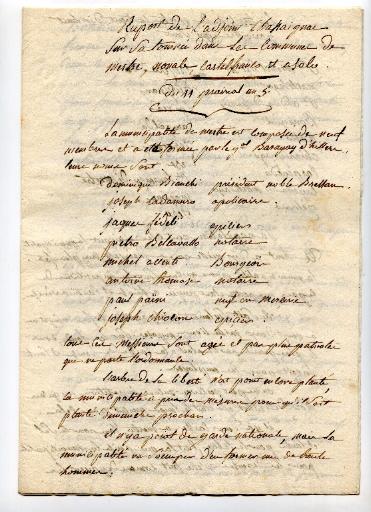 Raport de L'adjoint Chataignac
Sur Sa tournée dans La Commune de
mestre, novale, Castelfranco et asolo.
Du 11 prairial an 5.
La municipalité de mestre est composée de neuf
membres et a été formée par le Gal Baraguay d'hilliers
leurs noms sont
dominique Bianchi président noble Bressan.
joseph Cadamuro apoticaire.
jaques fedeli epiciers
pietro Beltavatto notaire
michel Bourgeois
antoine thomasi notaire
paul païni
joseph Chiolon epicier.
tous ces messieurs sont agés et pas plus patriotes
que ne porte l'ordonnance
L'arbre de la liberté n'est point encore planté
la municipalité a pris des mesures pour qu'il soit
planté dimanche prochain.
il n'y a point de garde nationale, mais La
municipalité va s'occuper d'en former une de
hommes.